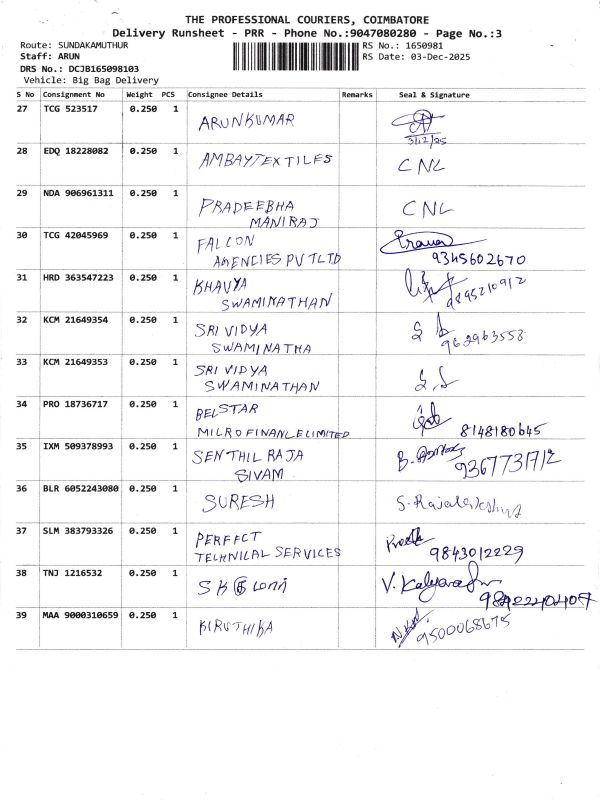 THE PROFESSIONAL COURIERS, COIMBATORE
Delivery Runsheet - PRR - Phone No.:9047080280 - Page No.:3
Route: SUNDAKAMUTHUR
RS No.: 1650981
Staff: ARUN
RS Date: 03-Dec-2025
DRS No.: DCJB165098103
Vehicle: Big Bag Delivery
S No Consignment No Weight PCS Consignee Details Remarks Seal & Signature
27 TCG 523517 0.250 1 ARUNKUMAR
3/12/25
28 EDQ 18228082 0.250 1 AMBAYTEXTILES CNL
29 NDA 906961311 0.250 1 PRADEEBHA CNL
MANIRAJ
30 TCG 42045969 0.250 1 FALCON
AGENCIES PVTLTD 9345602670
31 HRD 363547223 0.250 1 KHAVYA
SWAMINATHAN
32 KCM 21649354 0.250 1 SRI VIDYA
SWAMINATHA
33 KCM 21649353 0.250 1 SRI VIDYA
SWAMINATHAN
34 PRO 18736717 0.250 1 BELSTAR
MICROFINANCELIMITED 8148180645
35 IXM 509378993 0.250 1 SENTHIL RAJA
SIVAM 9367731712
36 BLR 6052243080 0.250 1 SURESH
37 SLM 383793326 0.250 1 PERFECT
TECHNICAL SERVICES 9843012229
38 TNJ 1216532 0.250 1 SK
39 MAA 9000310659 0.250 1 KIRUTHIKA 9500068675